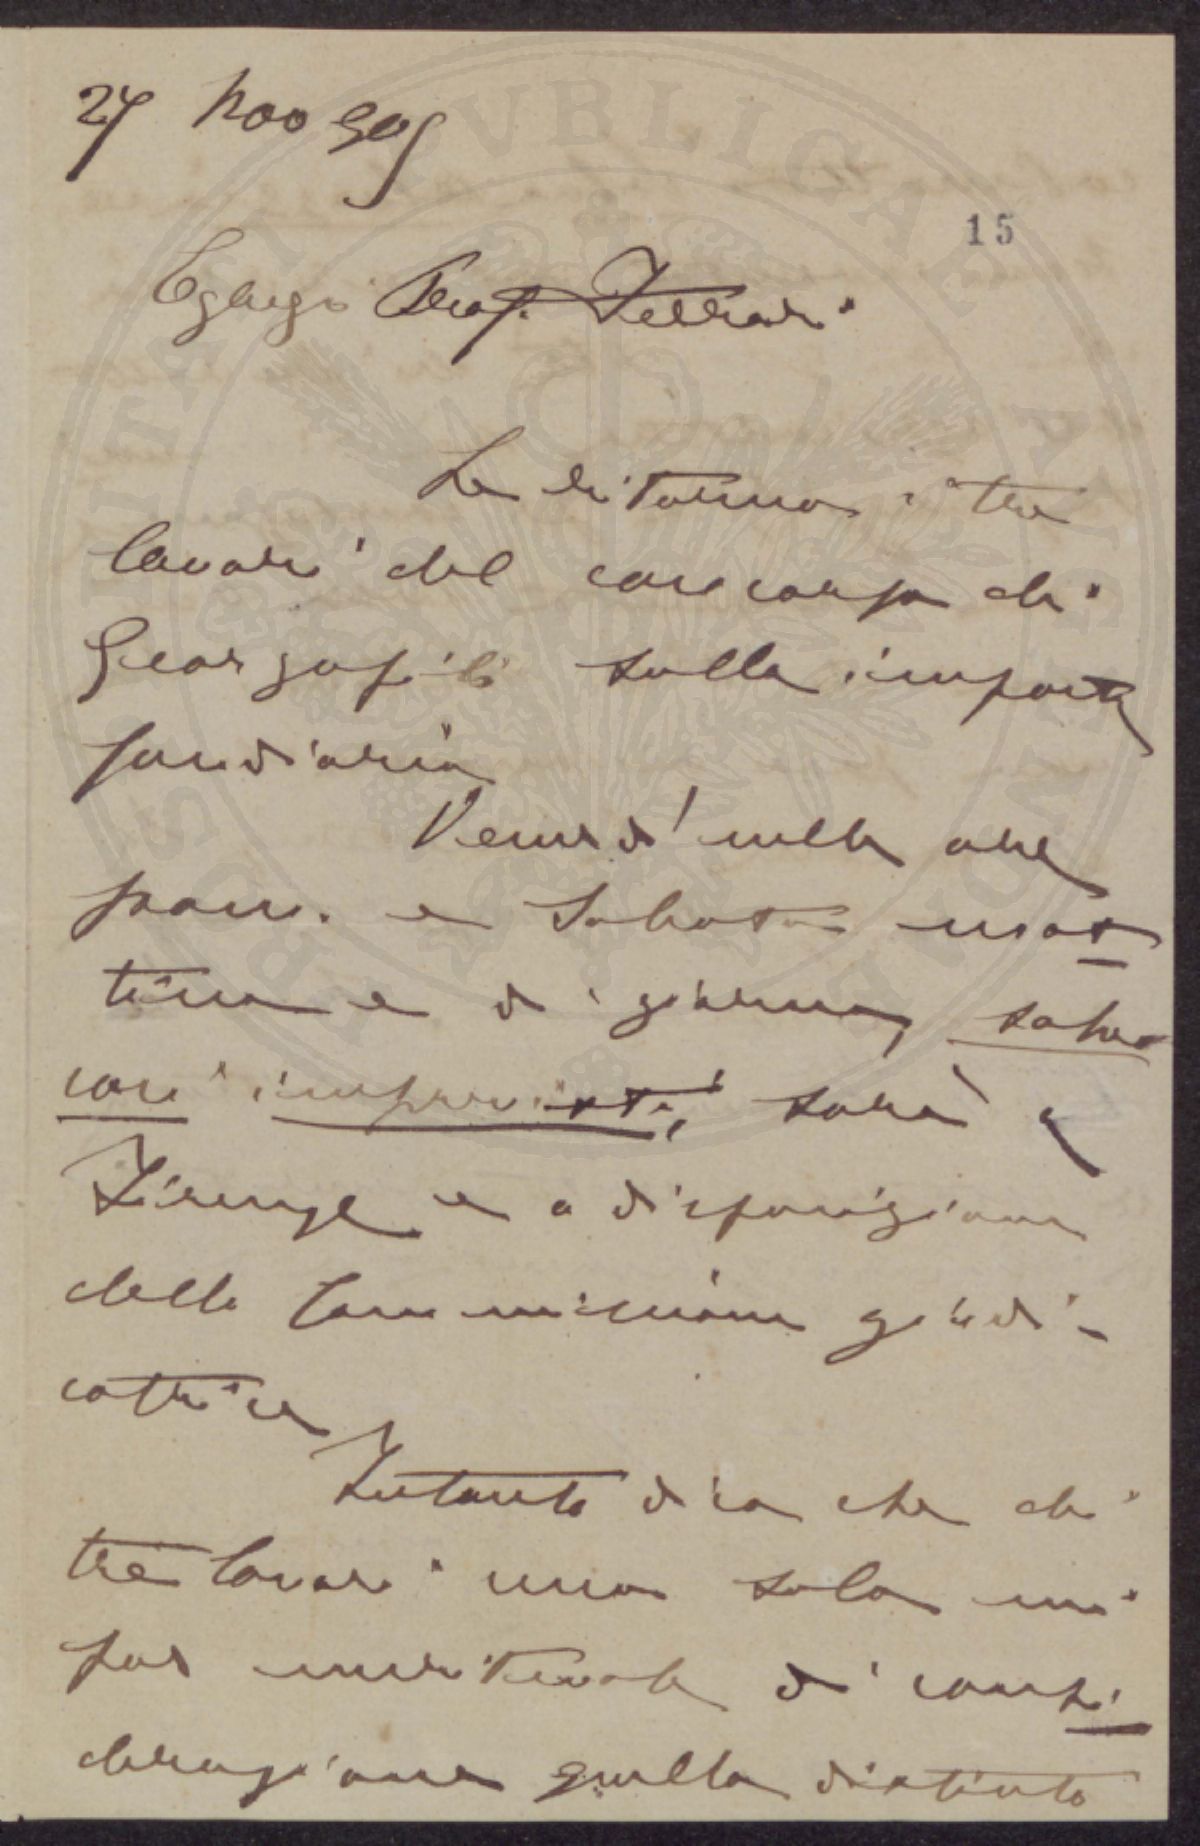 27 Nov 905
15
Egregio Prof. Ferrari
Le ritorno i tre
lavori del concorso dei
Georgofili sulla imposta
fondiaria
Venerdì nelle ore
pom. e Sabato mat
tina e di giorno, salvo
casi imprevisti, sarò a
Firenze e a disposizione
della Commissione giudi-
catrice
Intanto dico che dei
tre lavori uno solo mi
par meritevole di consi
derazione quello distinto